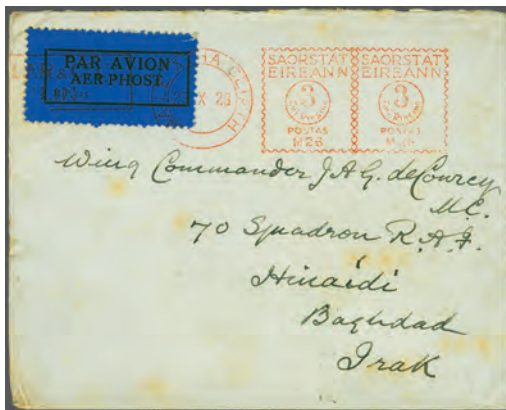 PAR AVION
AER PHOST
SAORSTAT
EIREANN
3
POSTAS
M26
SAORSTAT
EIREANN
3
POSTAS
Wing Commander J.A.G. deCourcy
M.C.
70 Squadron R.A.F.
Hinaidi
Baghdad
Irak